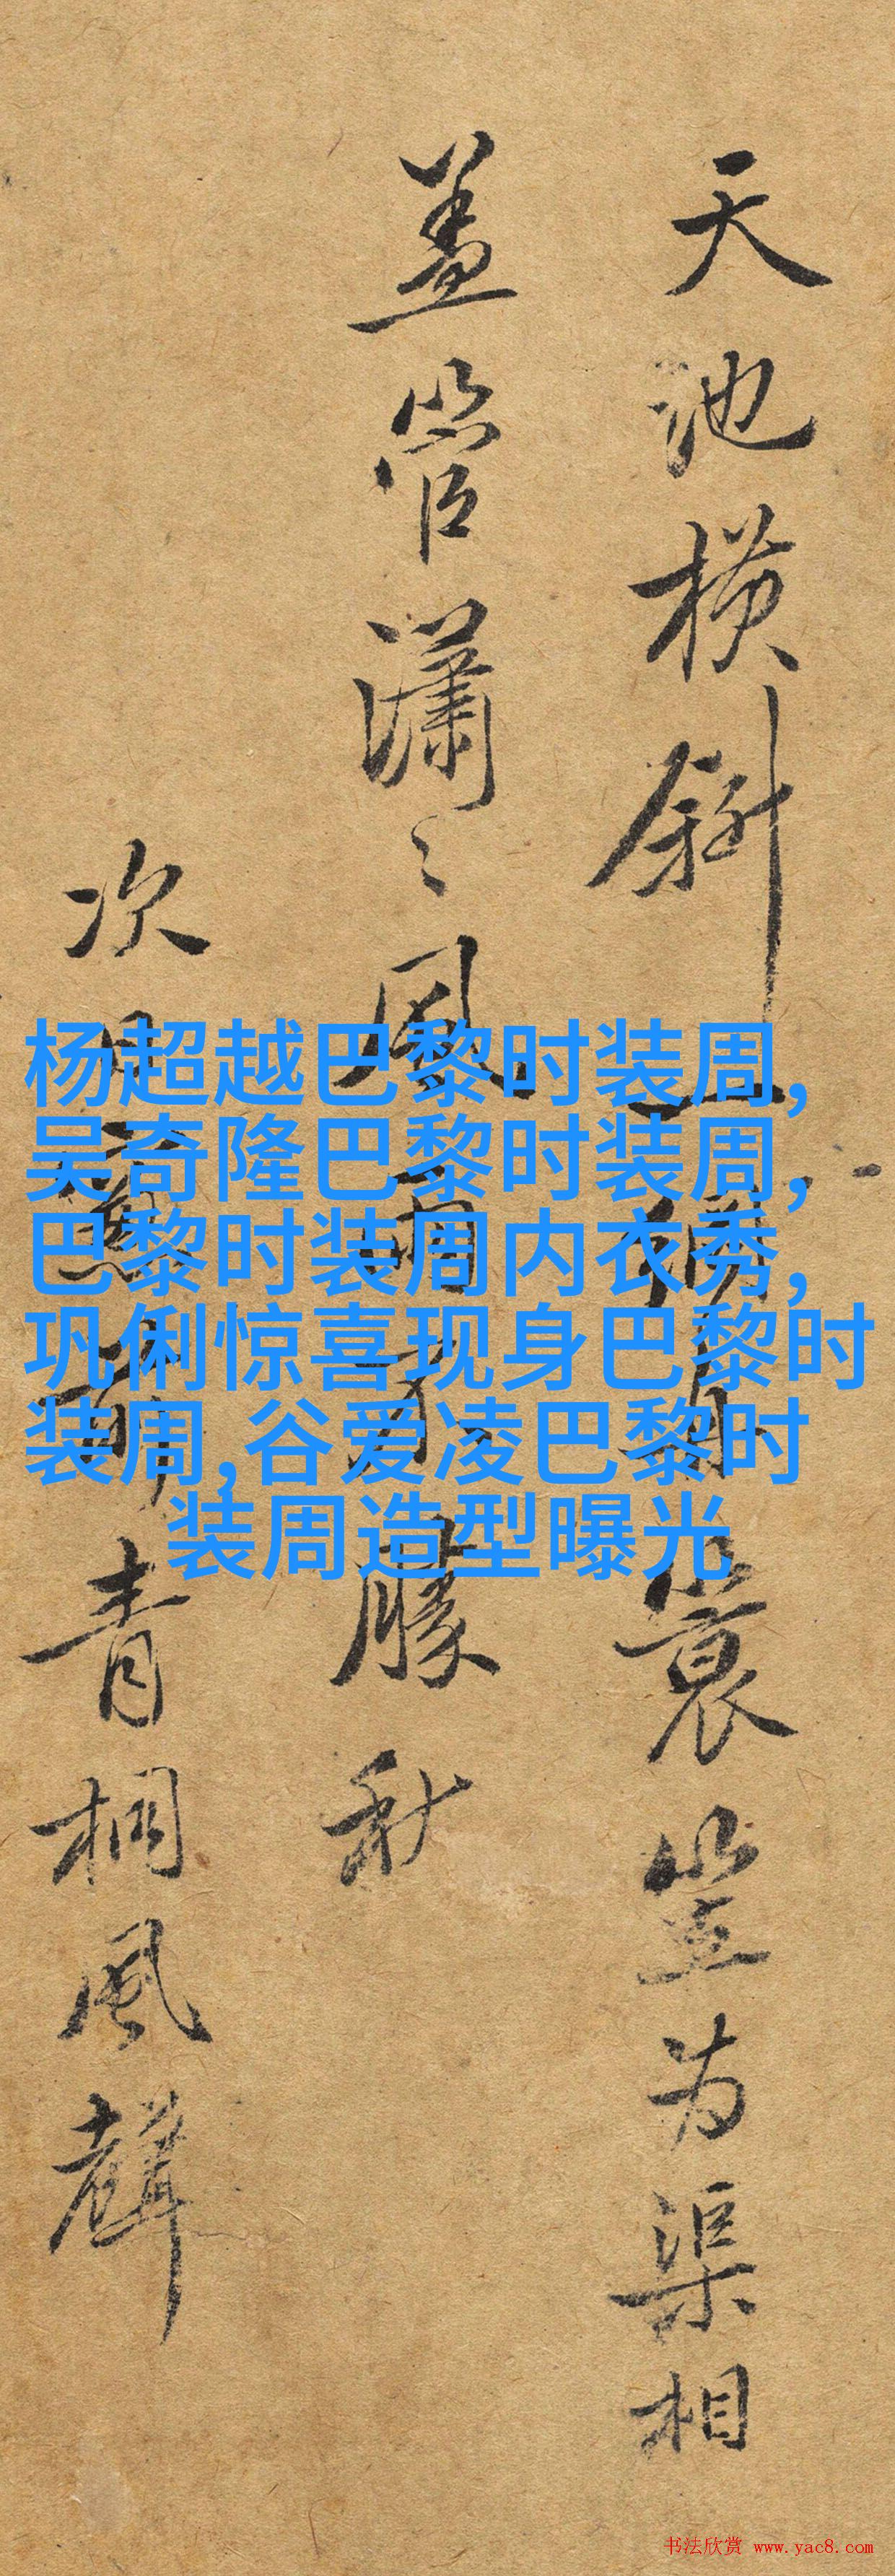 天池横斜一酒肩蓑笠为渠相
盖管潇〻風雨了朦秋
次
青桐風聲
杨超越巴黎时装周,
吴奇隆巴黎时装周,
巴黎时装周内衣秀,
巩俐惊喜现身巴黎时
装周,谷爱凌巴黎时
装周造型曝光
书法欣赏 www.yac8.com